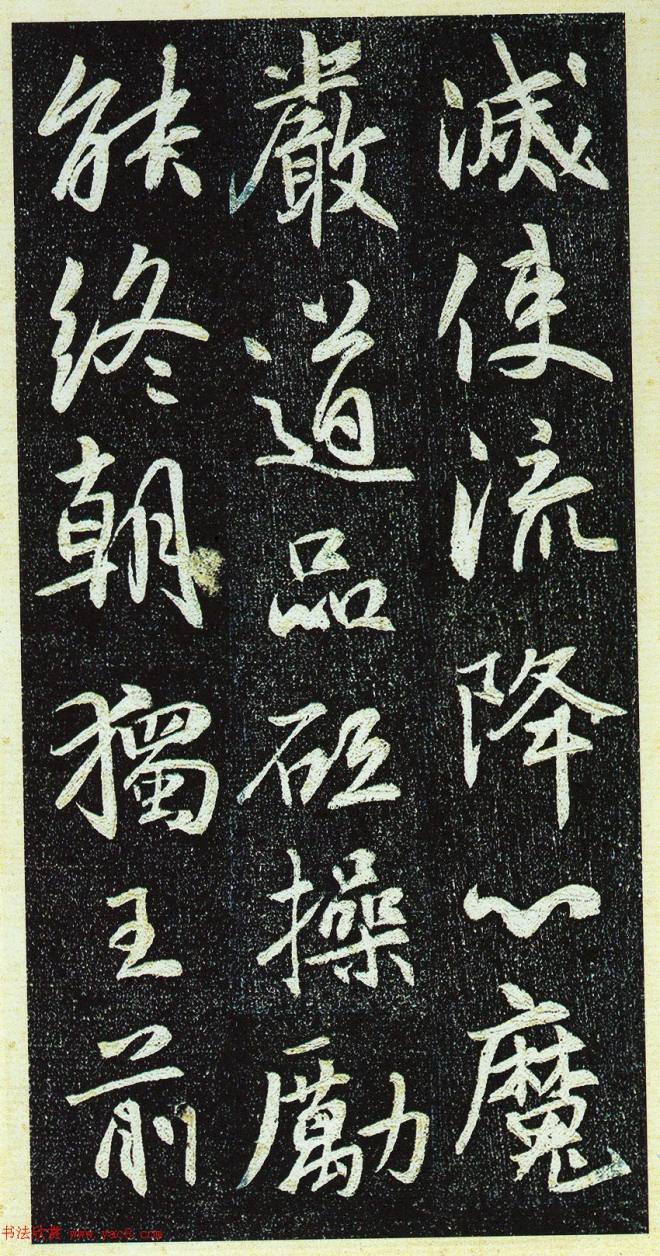 滅使流降心魔
嚴道品砥操勵
能終朝獨王前
书法欣赏 www.yac8.com